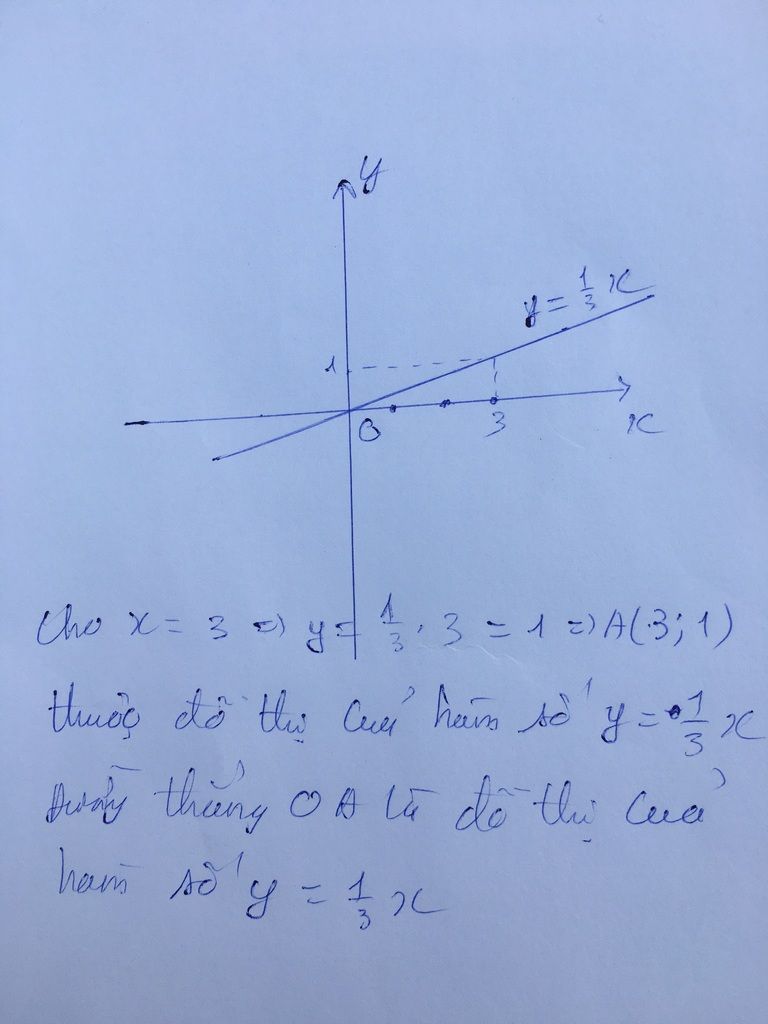 y
y = 1/3 x
1
O
3
x
Cho x = 3 => y = 1/3 . 3 = 1 => A(3; 1)
thuộc đồ thị của hàm số y = 1/3 x
Đường thẳng OA là đồ thị của
hàm số y = 1/3 x